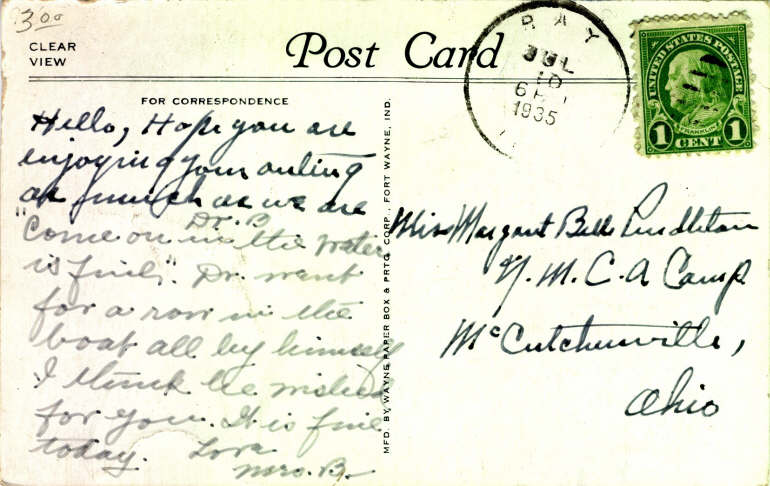 3.00
CLEAR
VIEW
Post Card
FOR CORRESPONDENCE
Hello, Hope you are
enjoying your outing
as much as we are
Dr. B
"Come on in the water
is fine". Dr. went
for a row in the
boat all by himself
I think he wished
for you. It is fine
today. Love
Mrs. B.
MFD. BY WAYNE PAPER BOX & PRTG. CORP., FORT WAYNE, IND.
RAY
JUL
10
6 P
1935
UNITED STATES POSTAGE
FRANKLIN
1 CENT 1
Miss Margaret Bell Pendleton
Y. M. C. A Camp
McCutchenville,
Ohio